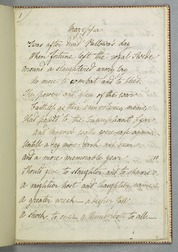 1
Mazeppa
Twas after dread Pultowa's day
When fortune left the royal Swede
Around a slaughtered army lay
No more to combat and to bleed
The power and glory of the war
Faithless as their vain votaries men
Had passed to the triumphant Czar
And Moscow's walls were safe again
Until a day more dark and drear
And a more memorable year
Should give to slaughter and to shame
A mightier host and haughtier name
A greater wreck a deeper fall
A shock to one a thunderbolt to all